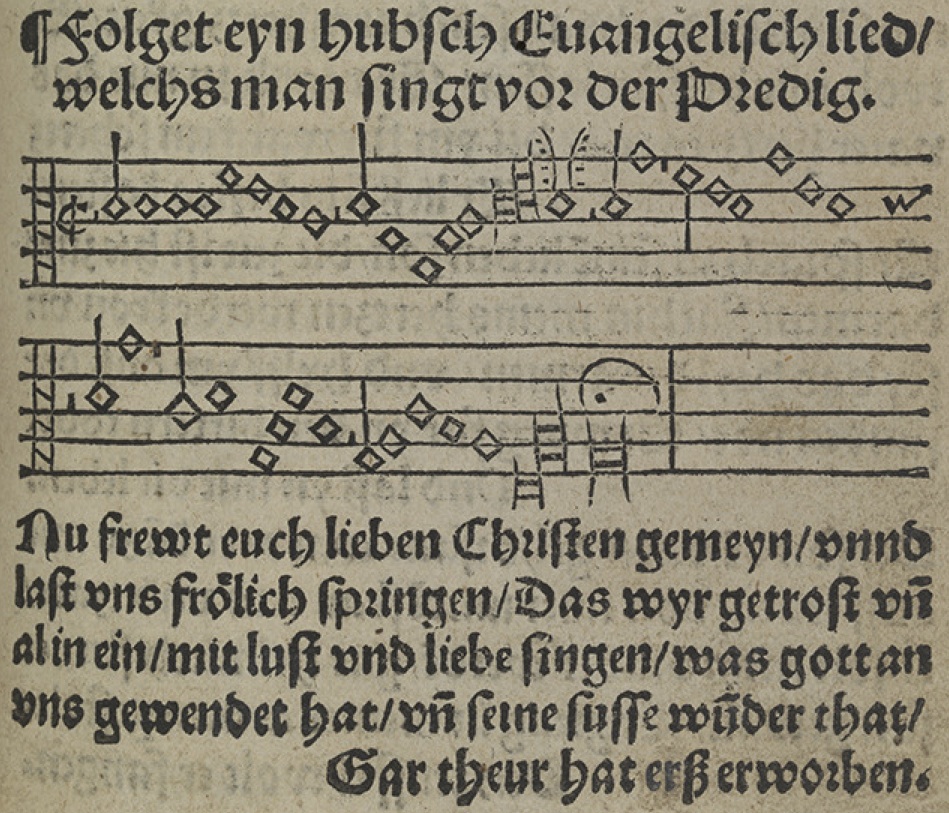 ¶ Folget eyn hubsch Euangelisch lied/
welchs man singt vor der Predig.
Nu frewt euch lieben Christen gemeyn/vnnd
last vns frölich springen/Das wyr getrost vn̄
al in ein/mit lust vnd liebe singen/was gott an
vns gewendet hat/vn̄ seine susse wūder that/
Gar theur hat erß erworben.